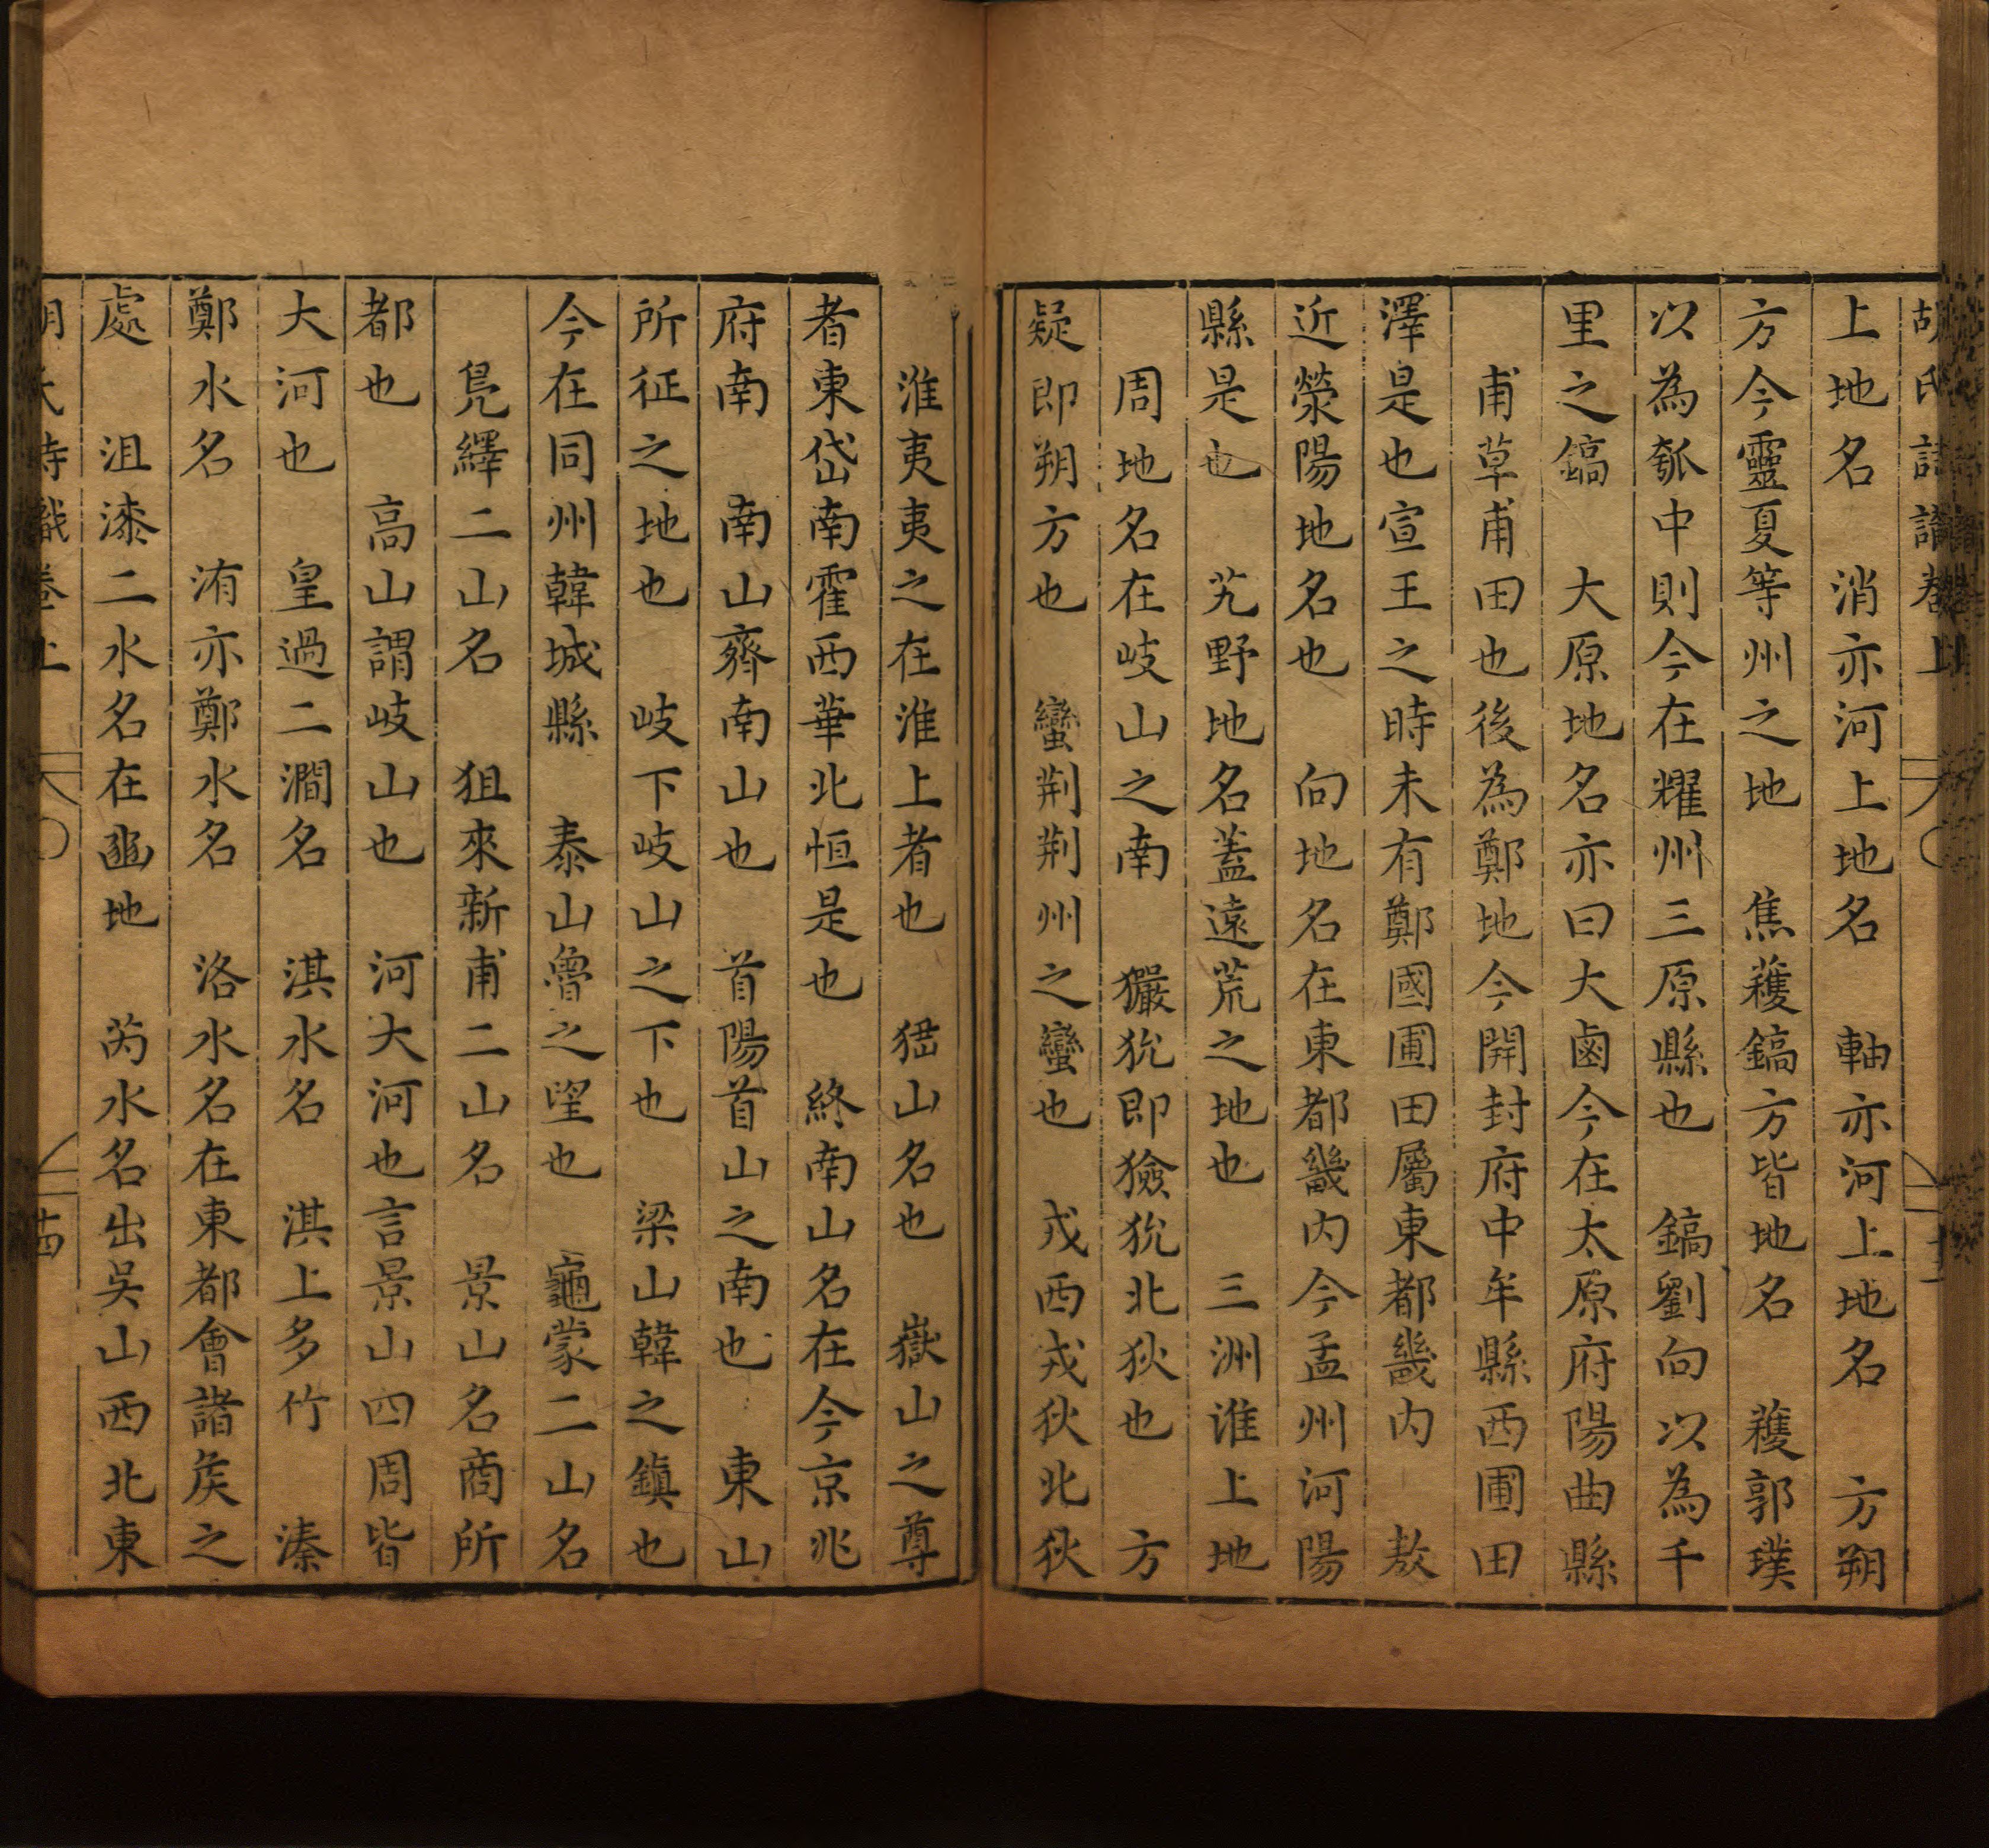 胡氏詩識卷上
上地名　消亦河上地名　軸亦河上地名　方朔
方今靈夏等州之地　焦穫鎬方皆地名　穫郭璞
以為瓠中則今在耀州三原縣也　鎬劉向以為千
里之鎬　大原地名亦曰大鹵今在太原府陽曲縣
甫草甫田也後為鄭地今開封府中牟縣西圃田
澤是也宣王之時未有鄭國圃田屬東都畿内　敖
近滎陽地名也　向地名在東都畿内今孟州河陽
縣是也　艽野地名蓋遠荒之地也　三洲淮上地
周地名在岐山之南　玁狁即獫狁北狄也　方
疑即朔方也　蠻荆荆州之蠻也　戎西戎狄北狄
淮夷夷之在淮上者也　峱山名也　嶽山之尊
者東岱南霍西華北恒是也　終南山名在今京兆
府南　南山齊南山也　首陽首山之南也　東山
所征之地也　岐下岐山之下也　梁山韓之鎮也
今在同州韓城縣　泰山魯之望也　龜蒙二山名
鳧繹二山名　徂來新甫二山名　景山名商所
都也　高山謂岐山也　河大河也言景山四周皆
大河也　皇過二澗名　淇水名　淇上多竹　溱
鄭水名　洧亦鄭水名　洛水名在東都會諸矦之
處　沮漆二水名在豳地　芮水名出吳山西北東
胡氏詩識卷上　十四